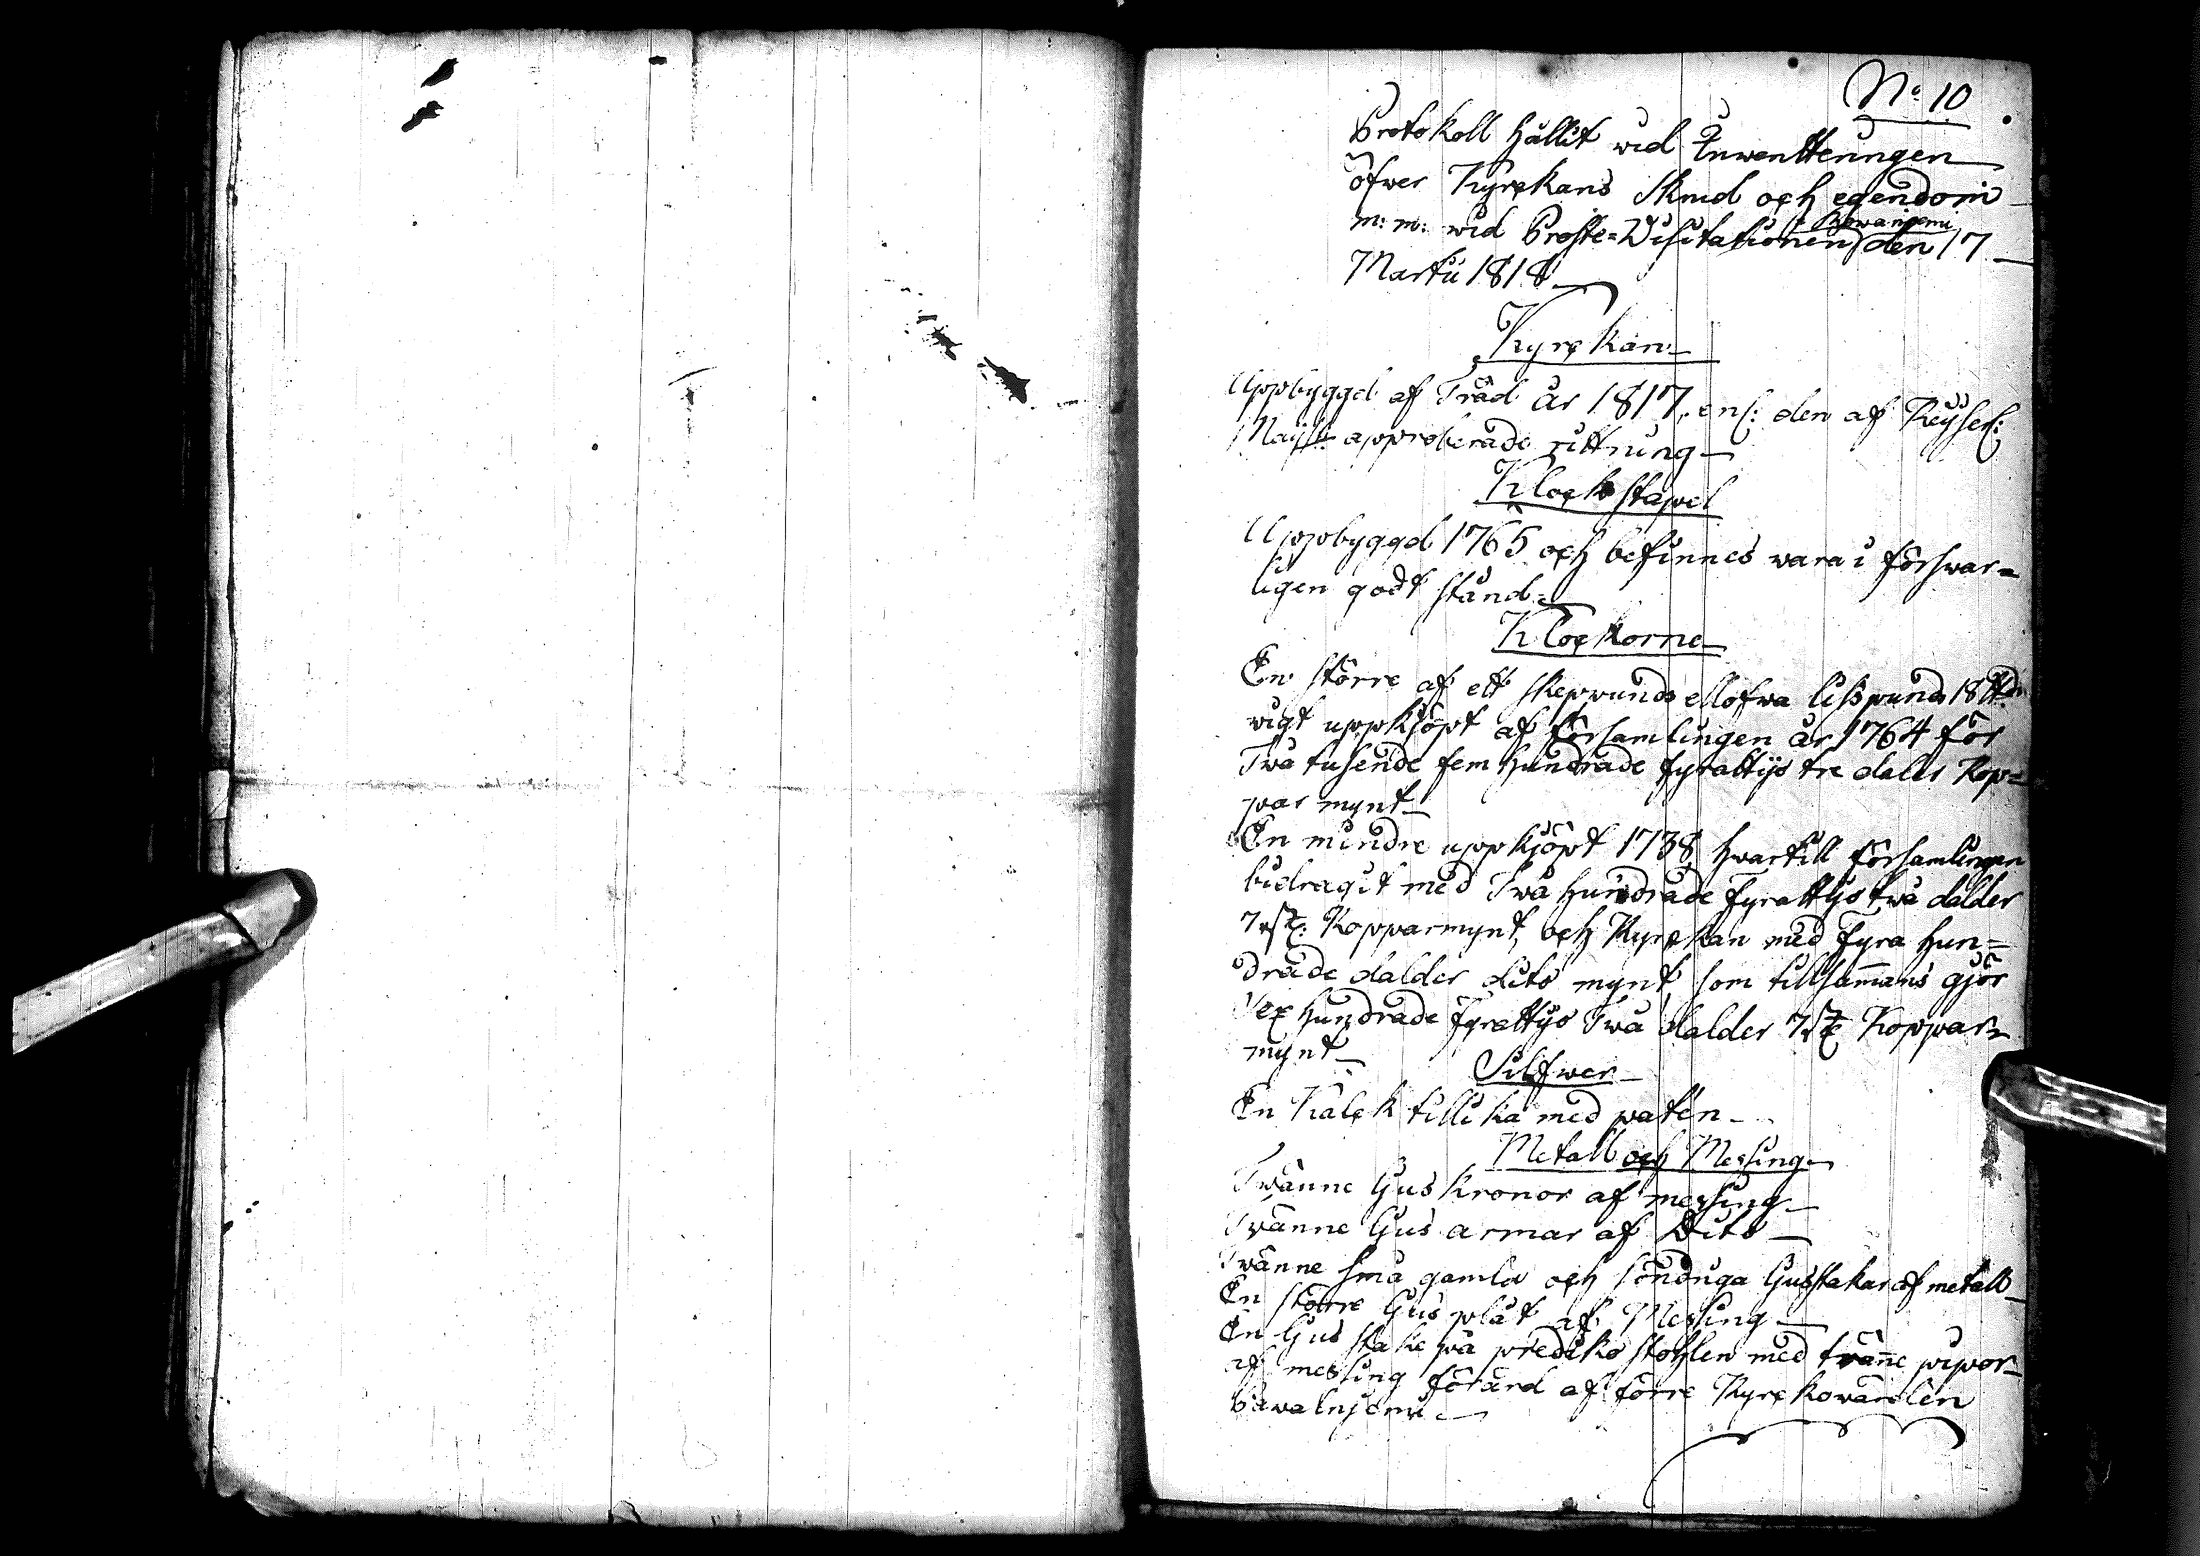 No: 10
Protokoll hållit wid Inwentteringen
öfwer Kyrckans Skrud och egendom
m: m: wid Proste=Visitationen i Rowaniemi den 17
Martii 1818
Kyrckan
Uppbyggd af Träd år 1817, enl: den af Keyserl:
Maij:t approberade rittning
Klockstapel
Uppbyggd 1765 och befinnes wara i förswar=
ligen godt stånd.
Klockorne
En större af ett skeppunds ellofwa lisspunds 18 ttds
wigt uppkjöpt af församlingen år 1764 för
Twå tusende fem hundrade fyrattijo tre daler Kop=
par mynt
En mindre uppkjöpt 1738, hwartill församlingen
bidragit med Twå hundrade Fyrattijo twå dalder
7 rst: Kopparmynt, och Kyrckan med Fyra hun=
drade dalder dito mynt, som tillsammans gjör
Sex hundrade Fyrattijo Twå dalder 7 rst Koppar=
mynt
Silfwer
En Kalck tillika med paten
Metall och Messing
Twänne ljus kronor af messing
Twänne ljus armar af Dito
Twänne små gamla och sönduga ljusstakar af metall
En större ljus plåt af Messing
En ljus stake på prediko stohlen med twänne pipor
af messing förärd af förre Kyrckowärden